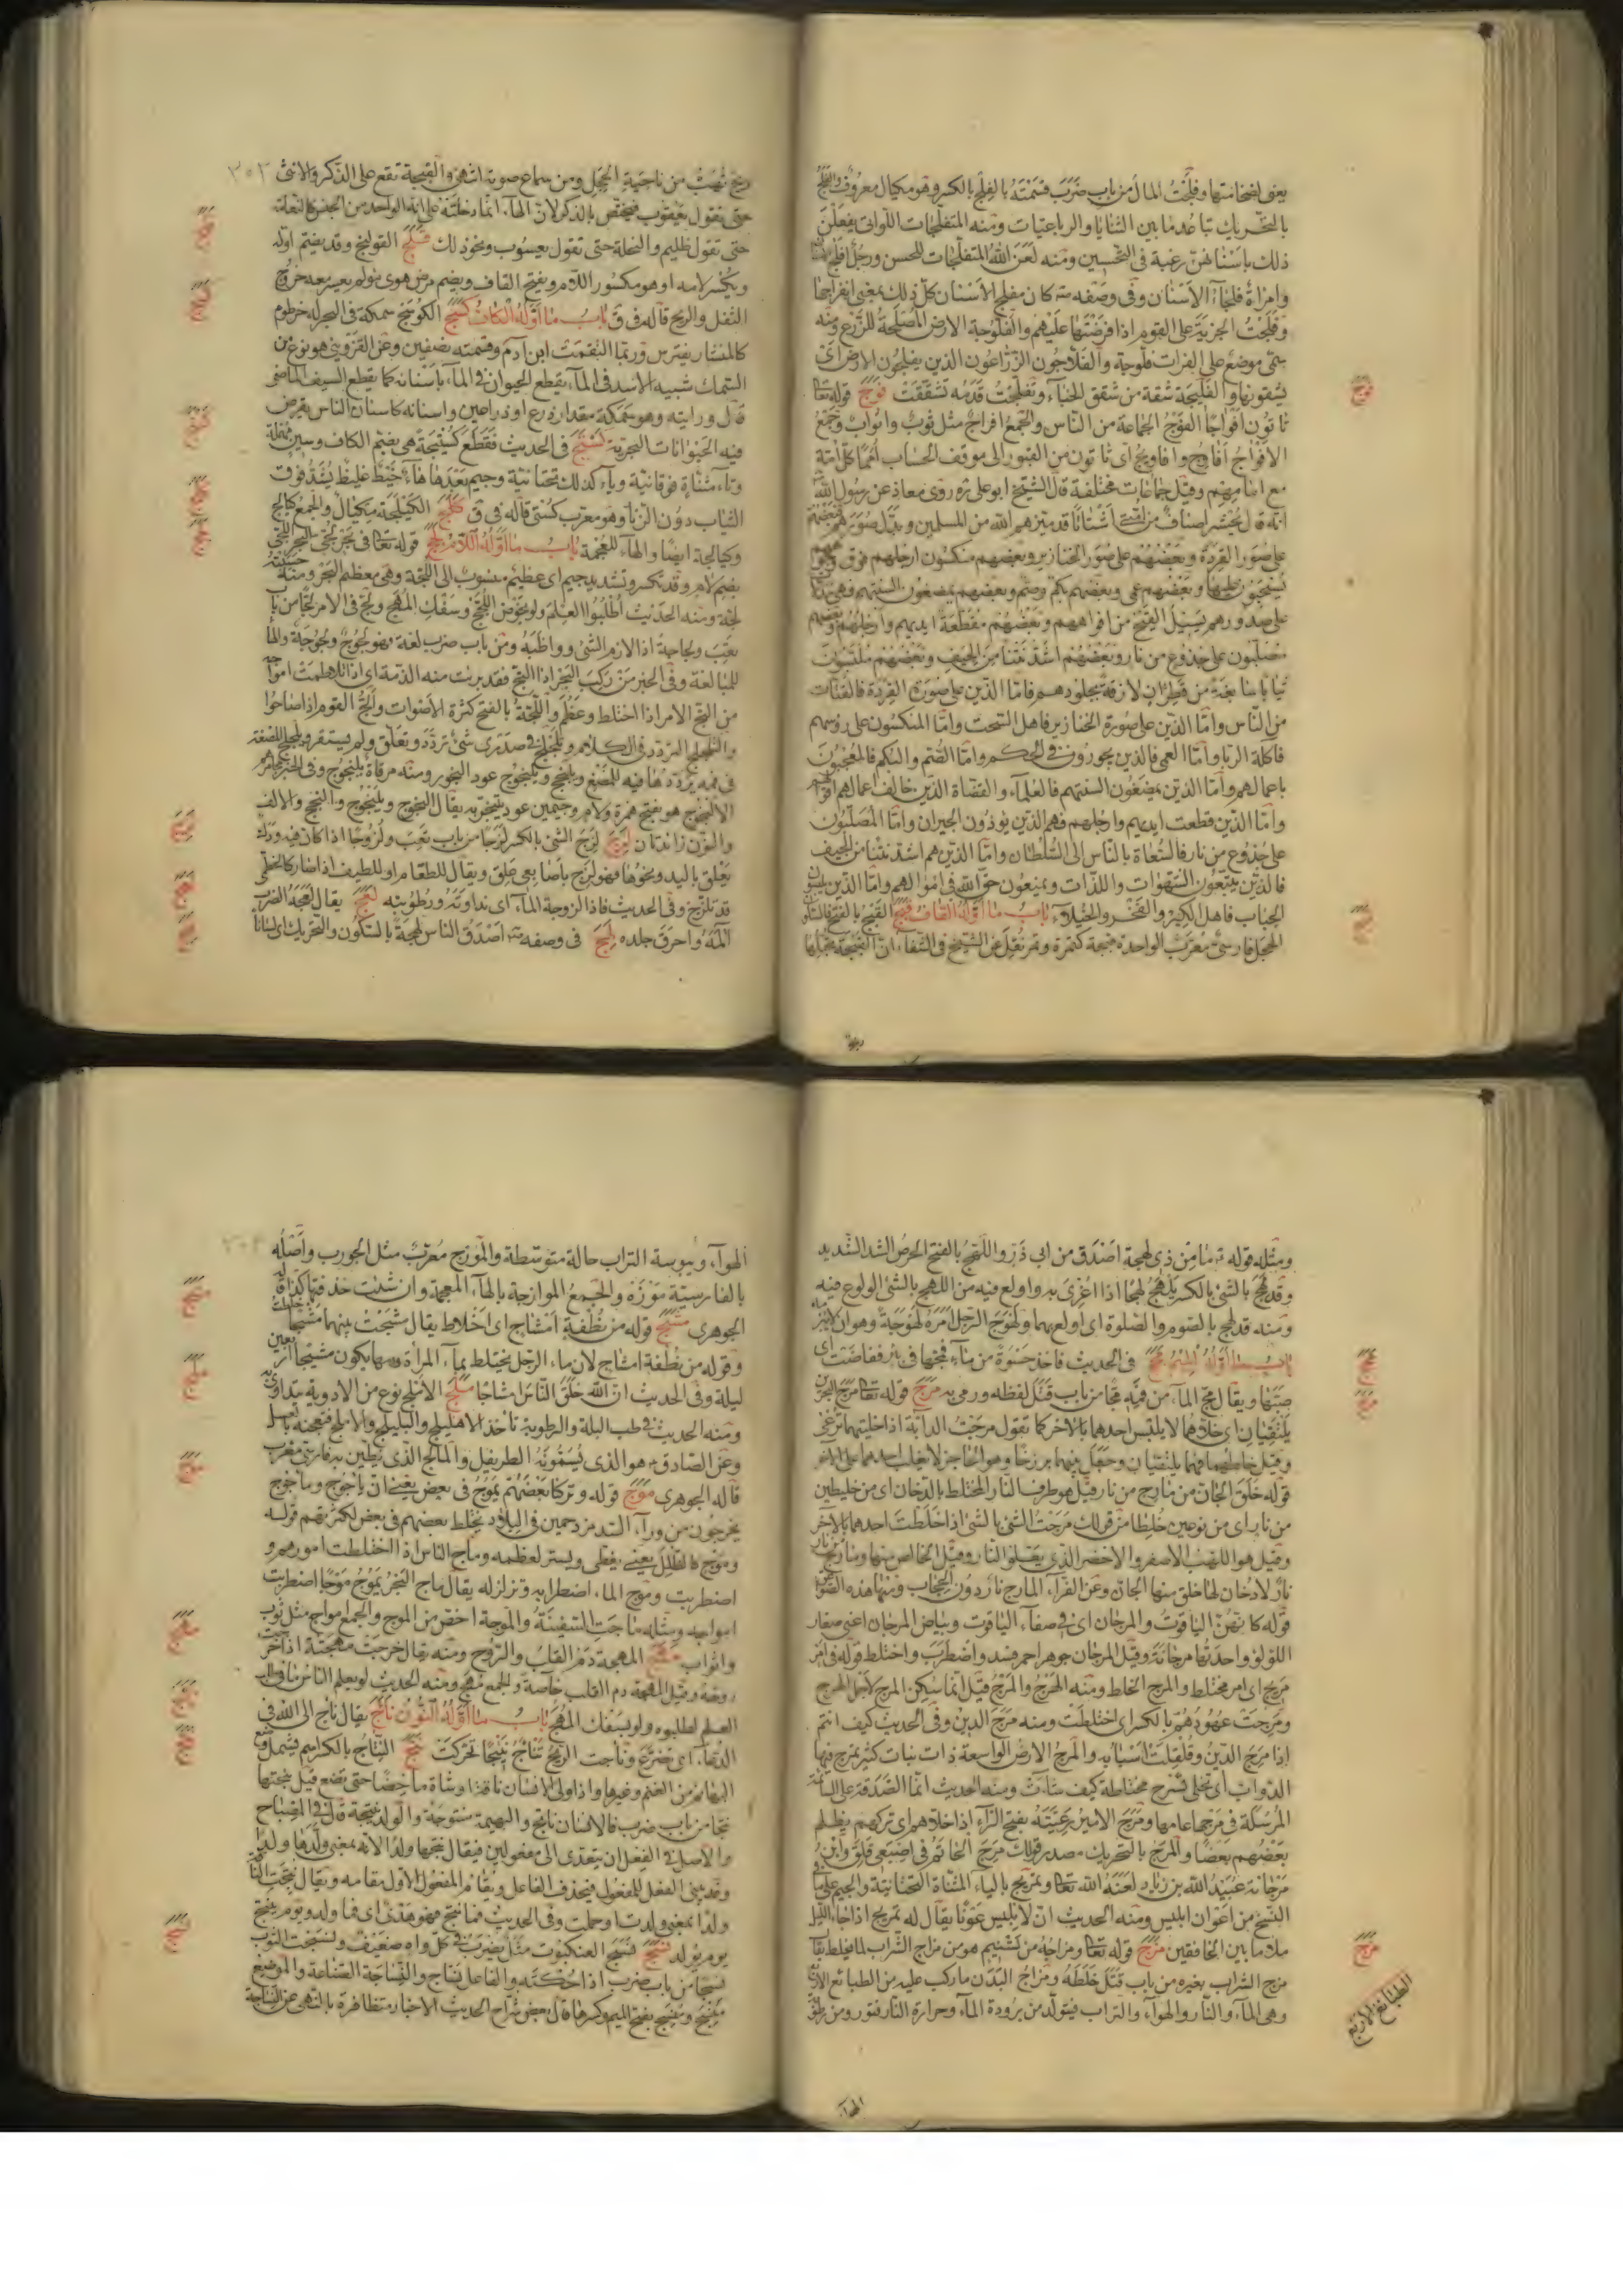 يعنى لضخامتها وفلجت المال من باب ضرب قسمته بالفلج بالكسر وهو مكيال معروف والفلج
بالتحريك تباعد ما بين الثنايا والرباعيات ومنه المتفلجات اللواتى يفعلن
ذلك باسنانهن رغبة فى التحسين ومنه لعن الله المتفلجات للحسن ورجل افلج
وامراة فلجاء الاسنان وفى وصفه كان مفلج الاسنان كل ذلك بمعنى انفراجها
وفلجت الجزية على القوم اذا فرضتها عليهم والفلوجة الارض المصلحة للزرع ومنه
سمى موضع على الفرات فلوجة والفلاجون الزراعون الذين يفلجون الارض اى
يشقونها والفليجة شقة من شقق الخباء وتفلجت قدمه تشققت فوج قوله تعا
تاتون افواجا الفوج الجماعة من الناس والجمع افواج مثل ثوب واثواب وجمع
الافواج افاوج وافاويج اى تاتون من القبور الى موقف الحساب امما كل امة
مع امامهم وقيل جماعات مختلفة قال الشيخ ابو على ره روى معاذ عن رسول الله
انه قال يحشر اصناف من امتى اشتاتا قد ميزهم الله من المسلمين وبدل صورهم فبعضهم
على صور القردة وبعضهم على صور الخنازير وبعضهم منكسون ارجلهم فوق
يسحبون عليها وبعضهم عمى وبعضهم بكم وصم وبعضهم يمضغون السنتهم فهى
على صدورهم يسيل القيح من افواههم وبعضهم مقطعة ايديهم وارجلهم وبعضهم
مصلبون على جذوع من نار وبعضهم اشد نتنا من الجيف وبعضهم ملبسون
ثيابا سابغة من قطران لازقة بجلودهم فاما الذين على صورة القردة فالقتات
من الناس واما الذين على صورة الخنازير فاهل السحت واما المنكسون على رؤسهم
فاكلة الربا واما العمى فالذين يجورون فى الحكم واما الصم والبكم فالمعجبون
باعمالهم واما الذين يمضغون السنتهم فالعلماء والقضاة الذين خالف اعمالهم اقوالهم
واما الذين قطعت ايديهم وارجلهم فهم الذين يوذون الجيران واما المصلبون
على جذوع من نار فالسعاة بالناس الى السلطان واما الذين هم اشد نتنا من الجيف
فالذين يتبعون الشهوات واللذات ويمنعون حق الله فى اموالهم واما الذين يلبسون
الجباب فاهل الكبر والفخر والخيلاء باب ما اوله القاف قبج القبج بالفتح فالسكون
الحجل فارسى معرب الواحدة قبجة كتمرة وتمر نقل عن الشيخ فى الشفاء ان القبجة
ريح تهب من ناحية الحجل ومن سماع صوته انتهى والقبجة تقع على الذكر والانثى
حتى تقول يعقوب فيختص بالذكر لان الهاء انما دخلته على انه الواحد من الجنس كالنعامة
حتى تقول ظليم والنحلة حتى تقول يعسوب ونحو ذلك قلج القولنج وقد يضم اوله
ويكسر لامه او هو مكسور اللام ويفتح القاف ويضم مرض معوى مولم يعسر معه خروج
الثفل والريح قاله فى ق باب ما اوله الكاف كسج الكوسج سمكة فى البحر له خرطوم
كالمنشار يفترس وربما التقمت ابن آدم وقسمته نصفين وعن القزوينى هو نوع من
السمك شبيه الاسد فى الماء يقطع الحيوان فى الماء باسنانه كما يقطع السيف الماضى
قال ورايته وهو سمكة مقدار ذراع او ذراعين واسنانه كاسنان الناس يفرض
فيه الحيوانات البحرية كستج فى الحديث فقطع كستيجة هى بضم الكاف وسين مهملة
وتاء مثناة فوقانية وياء كذلك تحتانية وجيم بعدها هاء خيط غليظ يشد فوق
الثياب دون الزنار وهو معرب كستى قاله فى ق كلج الكيلجة مكيال والجمع كيالج
وكيالجة ايضا والهاء للعجمة باب ما اوله اللام لجج قوله تعا فى بحر لجى البحر اللجى
بضم لام وقد تكسر وتشديد جيم اى عظيم منسوب الى اللجة وهى معظم البحر ومنه
لجة ومنه الحديث اطلبوا العلم ولو بخوض اللجج وسفك المهج ولج فى الامر لججا من باب
تعب ولجاجة اذا لازم الشئ وواظبه ومن باب ضرب لغة فهو لجوج ولجوجة والهاء
للمبالغة وفى الخبر من ركب البحر اذا التج فقد برئت منه الذمة اى اذا تلاطمت امواجه
من التج الامر اذا اختلط وعظم واللجة بالفتح كثرة الاصوات والج القوم اذا صاحوا
والتلجلج التردد فى الكلام وتلجلج فى صدرى شئ تردد وتعلق ولم يستقر ويلجلج المضغة
فى فمه يرددها فيه للمضغ ويلنجج ويلنجوج عود البخور ومنه مرقاة يلنجوج وفى الخبر مجامرهم
الالنجوج هو بفتح همزة ولام وجيمين عود يتبخر به يقال النجوج ويلنجوج والنجج والالف
والنون زائدتان لزج لزج الشئ بالكسر لزجا من باب تعب ولزوجا اذا كان فيه ودك
يعلق باليد ونحوها فهو لزج باصابعى علق ويقال للطعام او للطيف اذا صار كالخطمى
قد تلزج وفى الحديث فاذا لزوجة الماء اى نداوته ورطوبته لعج يقال لعجه الضرب
آلمه واحرق جلده لهج فى وصفه اصدق الناس لهجة بالسكون والتحريك اى لسانا
ومثله قوله ما من ذى لهجة اصدق من ابى ذر واللهج بالفتح الحرص الشد الشديد
وقد لهج بالشئ بالكسر يلهج لهجا اذا اغرى به واولع فيه من اللهج بالشئ الولوع فيه
ومنه قد لهج بالصوم والصلوة اى اولع بهما ولهوج الرجل امره لهوجة وهو ان لا يبرمه
باب ما اوله الميم مجج فى الحديث فاخذ حسوة من ماء فمجها فى بئر ففاضت اى
صبتها ويقال مج الماء من فيه مجا من باب قتل لفظه ورمى به مرج قوله تعا مرج البحرين
يلتقيان اى خلاهما لا يلبس احدهما بالاخر كما تقول مرجت الدابة اذا خليتها ترعى
وقيل خلطهما فهما يلتقيان وجعل بينهما برزخا وهو الحاجز لا يغلب احدهما على الاخر
قوله خلق الجان من مارج من نار قيل هو طرف النار المختلط بالدخان اى من خليطين
من نار اى من نوعين خلطا من قولك مرجت الشئ بالشئ اذا خلطت احدهما بالاخر
وقيل هو اللهب الاصفر والاخضر الذى يعلو النار وقيل الخالص منها ومارج نار
نار لا دخان لها خلق منها الجان وعن الفراء المارج نار دون الحجاب ومنها هذه الصواعق
قوله كانهن الياقوت والمرجان اى فى صفاء الياقوت وبياض المرجان اعنى صغار
اللؤلؤ واحدتها مرجانة وقيل المرجان جوهر احمر فسد واضطرب واختلط قوله فى امر
مريج اى امر مختلط والمرج الخلط ومنه الهرج والمرج قيل انما يسكن المرج لاجل الهرج
ومرجت عهودهم بالكسر اى اختلطت ومنه مرج الدين وفى الحديث كيف انتم
اذا مرج الدين وقلقلت اسبابه والمرج الارض الواسعة ذات نبات كثير تمرج فيها
الدواب اى تخلى تسرح مختلطة كيف شاءت ومنه الحديث انما الصدقة على السائمة
المرسلة فى مرجها عامها ومرج الامير رعيته بفتح الراء اذا خلاهم اى تركهم يظلم
بعضهم بعضا والمرج بالتحريك مصدر قولك مرج الخاتم فى اصبعى قلق وابن
مرجانة عبيد الله بن زياد لعنه الله تعا وتمريج بالياء المثناة التحتانية والجيم على ما فى
النسخ من اعوان ابليس ومنه الحديث ان لابليس عونا يقال له تمريج اذا جاء الليل
ملا ما بين الخافقين مزج قوله تعا ومزاجه من تسنيم هو من مزاج الشراب لما يخلط يقال
مزج الشراب بغيره من باب قتل خلطه ومزاج البدن ما ركب عليه من الطبائع الاربع
وهى الماء والنار والهواء والتراب فيتولد من برودة الماء وحرارة النار فتور ومن رطوبة
الطبايع الاربع
الهواء ويبوسة التراب حالة متوسطة والموزج معرب مثل الجورب واصله
بالفارسية موزه والجمع الموازجة بالهاء المعجمة وان شئت حذفتها كذا قاله
الجوهرى مشج قوله من نطفة امشاج اى اخلاط يقال مشجت بينهما مشجا
وقوله من نطفة امشاج لان ماء الرجل يختلط بماء المراة ودمها يكون مشيجا اربعين
ليلة وفى الحديث ان الله خلق الناس امشاجا ملج الاملج نوع من الادوية يتداوى به
ومنه الحديث فى طب البلة والرطوبة تاخذ الاهليلج والبليلج والاملج فتعجنه بعسل
وعن الصادق هو الذى يسمونه الطريفل والمالج الذى يطين به فارسى معرب
قاله الجوهرى موج قوله وتركنا بعضهم يموج فى بعض يعنى ان ياجوج وماجوج
يخرجون من وراء السد مزدحمين فى البلاد يختلط بعضهم فى بعض لكثرتهم قوله
وموج كالظلل يعنى يغطى ويستر لعظمه وماج الناس اذا اختلطت امورهم و
اضطربت وموج الماء اضطرابه وتزلزله يقال ماج البحر يموج موجا اضطربت
امواجه ومثله ماجت السفينة والموجة اخص من الموج والجمع امواج مثل ثوب
واثواب مهج المهجة دم القلب والروح ومنه يقال خرجت مهجته اذا خرجت
روحه وقيل المهجة دم القلب خاصة والجمع مهج ومنه الحديث لو يعلم الناس ما فى طلب
العلم لطلبوه ولو بسفك المهج باب ما اوله النون نأج يقال ناج الى الله فى
الدعاء اى تضرع وناجت الريح تناج نئيجا تحركت نتج النتاج بالكسر اسم يشمل وضع
البهائم من الغنم وغيرها واذا ولى الانسان ناقة او شاة ماخضا حتى تضع قيل نتجتها
نتجا من باب ضرب فالانسان ناتج والبهيمة منتوجة والولد نتيجة قال فى المصباح
والاصل فى الفعل ان يتعدى الى مفعولين فيقال نتجها ولدا لانه بمعنى ولدها ولدا
وقد يبنى الفعل للمفعول فيحذف الفاعل ويقام المفعول الاول مقامه ويقال نتجت الناقة
ولدا بمعنى ولدت او حملت وفى الحديث فما نتج فهو هدى اى فما ولد ويوم ينتج
يوم يولد نسج نسج العنكبوت مثل يضرب فى كل واه ضعيف ونسجت الثوب
نسجا من باب ضرب اذا حكته والفاعل نساج والنساجة الصناعة والموضع
منسج ومنسج بفتح الميم وكسرها قال بعض شراح الحديث الاخبار متظافرة بالنهى عن النساجة